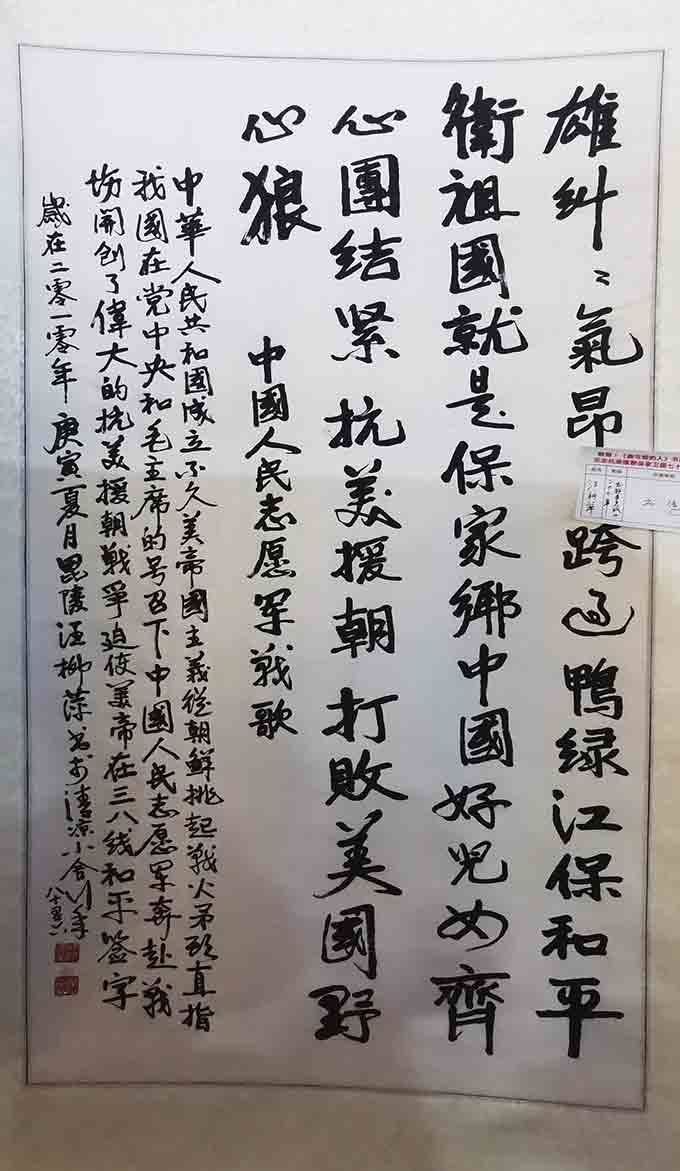 雄纠〻氣昂跨过鴨绿江保和平
衛祖國就是保家鄉中國好兒女齊
心團结紧抗美援朝打敗美國野
心狼
中國人民志愿军战歌
中華人民共和國成立不久美帝國主義從朝鮮挑起戰火矛头直指
我國在党中央和毛主席的号召下中國人民志愿军奔赴战
場開创了偉大的抗美援朝戰爭迫使美帝在三八线和平签字
歲在二零一零年庚寅夏月毘陵汪柳萍书于清凉小舍